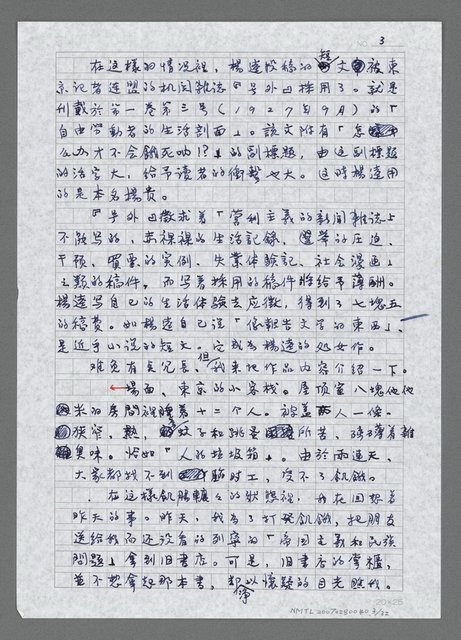 3
在這樣的情況裡，楊逵投稿的短文被東
京記者連盟的机関雜誌『号外』採用了。就是
刊載於第一卷第三号（1927年9月）的「
自由勞動者的生活剖面」。該文附有「怎
么办才不会餓死呐!?」的副標題，由这副標題
的活字大，給予讀者的衝戟也大。这時楊逵用
的是本名楊貴。
『号外』徵求着「營利主義的新聞雜誌上
不敢写的，赤裸裸的生活記錄，選挙的圧迫、
干預、買票的实例、失業体驗記、社会漫画」
之類的稿件，而写着採用的稿件将給予薄酬。
楊逵写自己的生活体驗去应徵，得到了七塊五
的稿費。如楊逵自己說「像報告文学的東西」、
是近乎小說的短文。它成為楊逵的处女作。
难免有矣冗長，但我来把作品内容介紹一下。
場面、東京的小客栈。屋頂室八塊他他
米的房間裡睡着十二个人。被蓋两人一條。
狭窄，熱，蚊子和跳蚤所苦，瀰漫着雜
臭味。恰如「人的垃圾箱」。由於雨連天，
大家都找不到临时工，受不了飢餓。
在这樣飢腸轆々的狀態裡，我在回想着
昨天的事。昨天，我為了打発飢餓，把朋友
送給我而还没看的列寧的「帝国主義和民族
問題」拿到旧書店。可是，旧書店的掌櫃，
並不想拿起那本書，却以懷疑的目光瞧我。
20×25
NMTL 20070280040 3/32